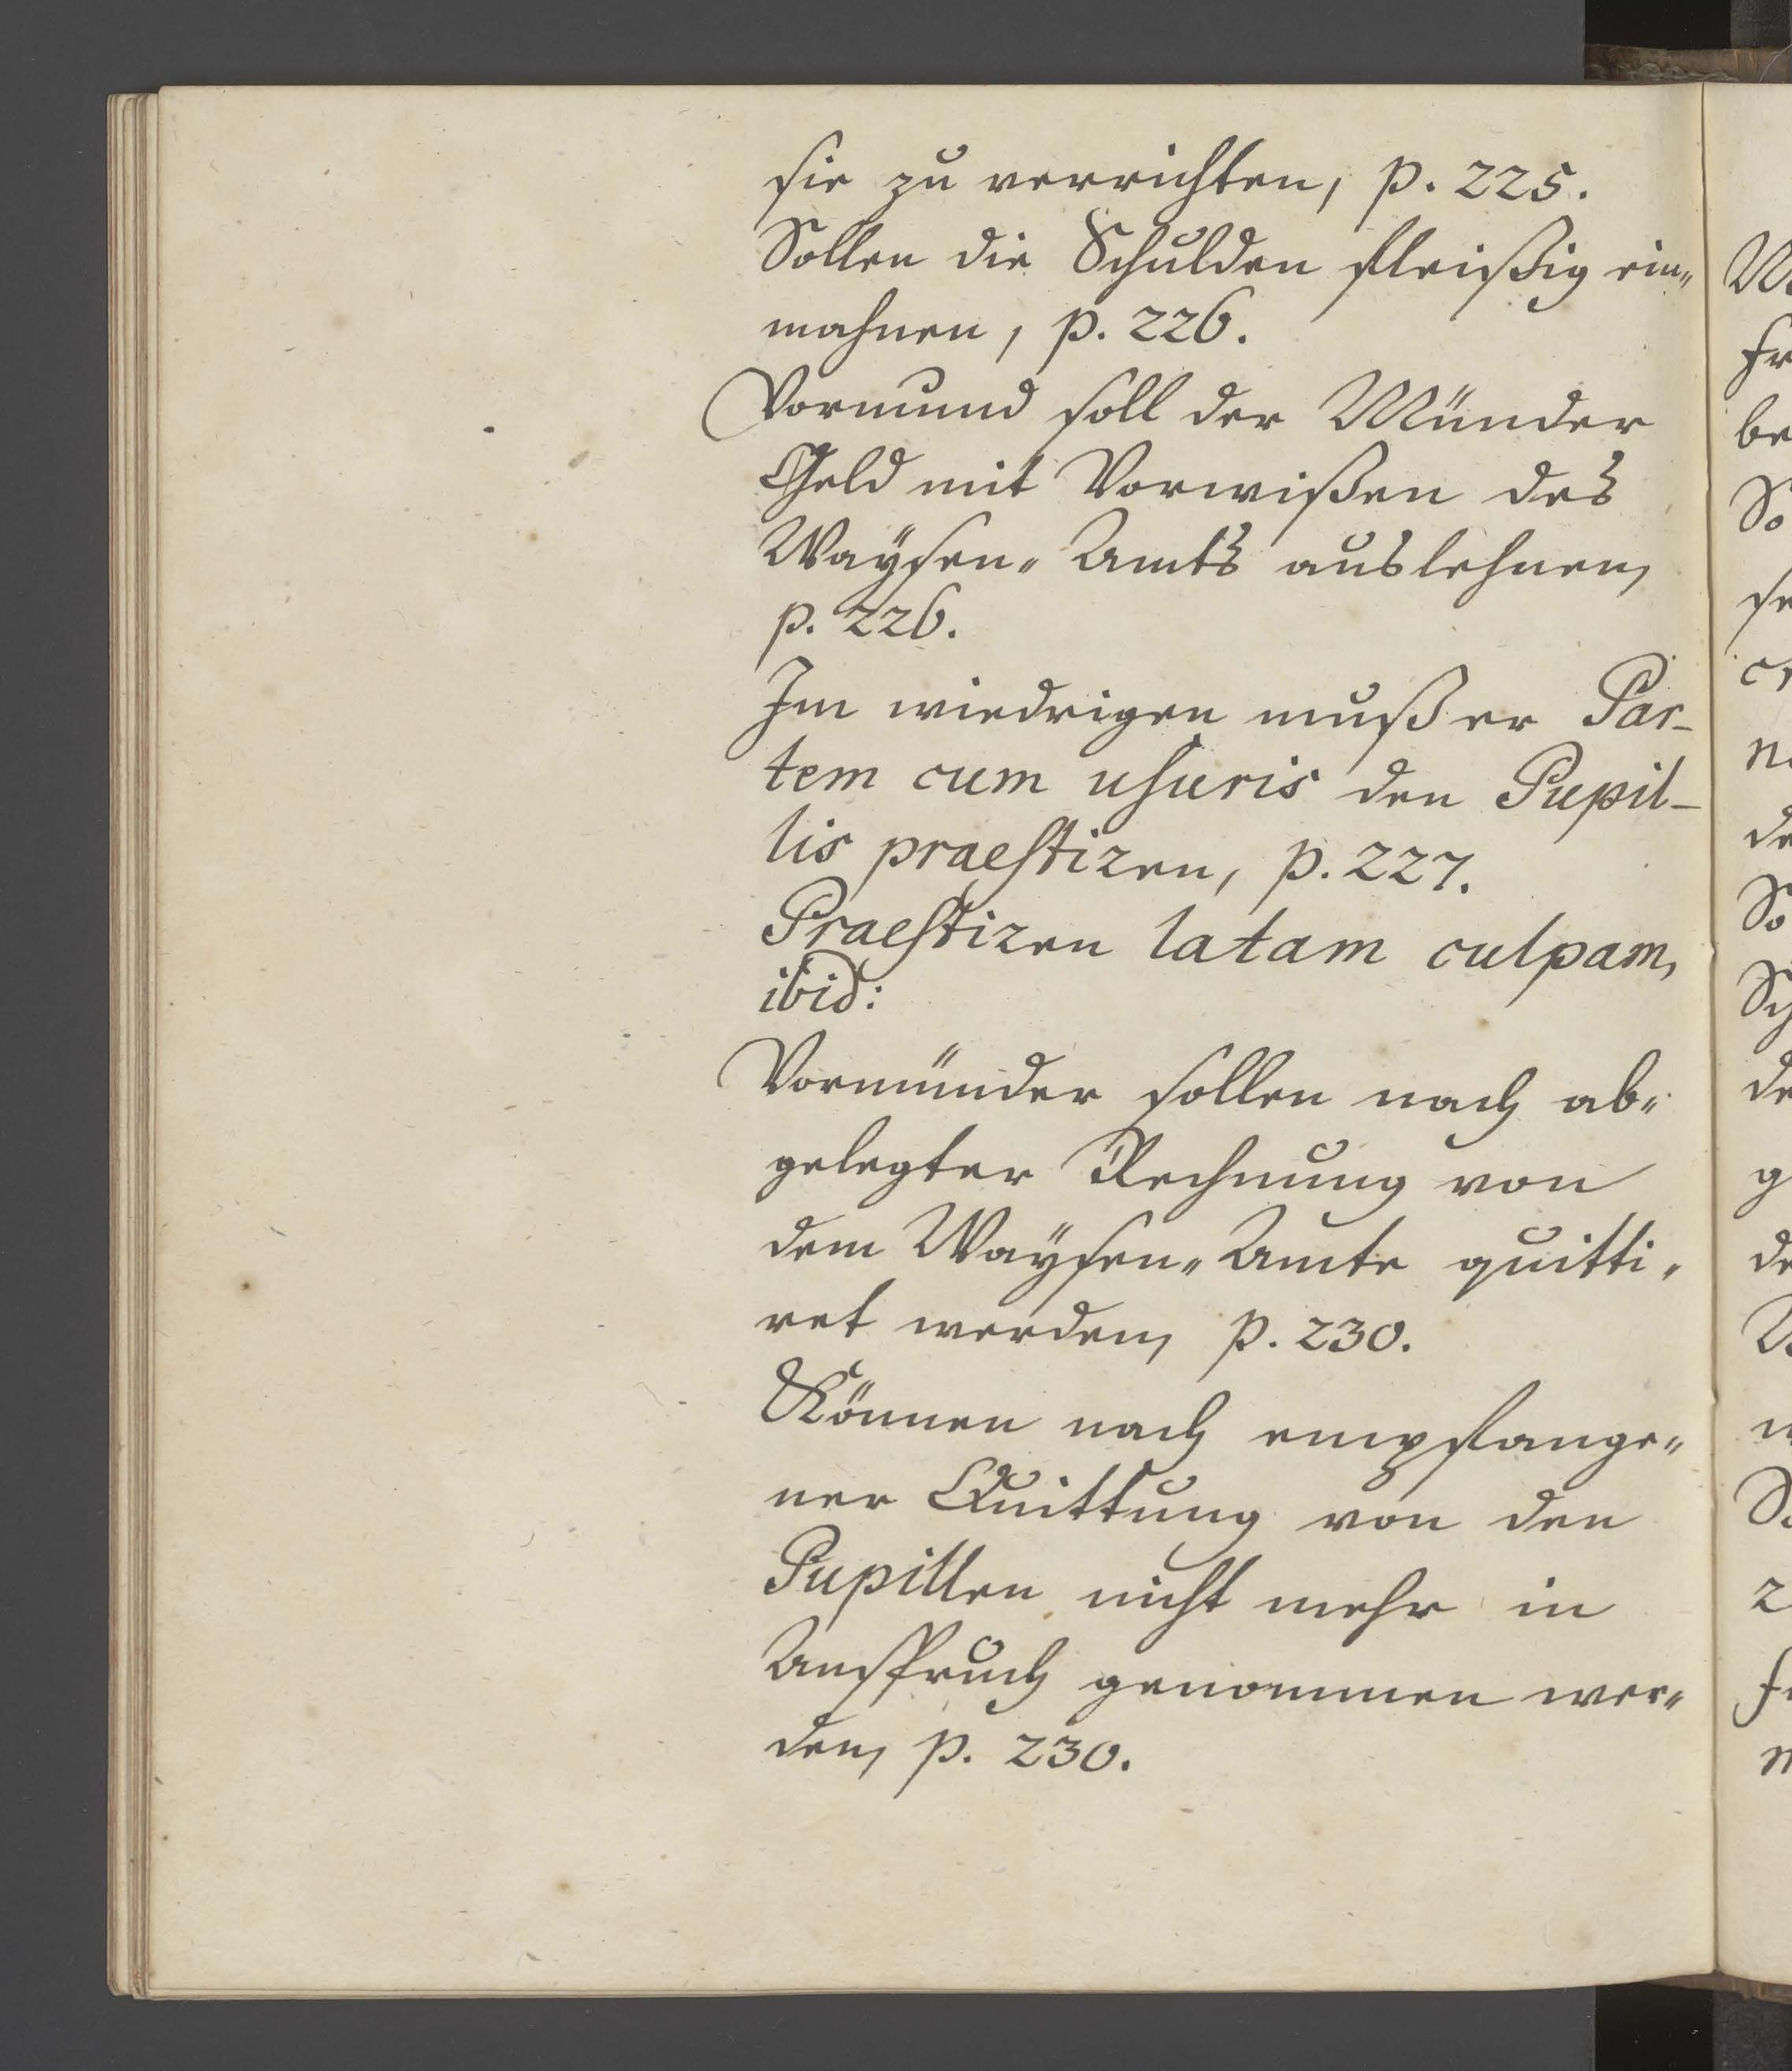 sie zu verrichten, p. 225.
Sollen die Schulden fleißig ein„
mahnen, p. 226.
Vormund soll der Münder
Geld mit Vorwißen des
Waÿsen„ Amts auslehnen,
p. 226.
Im wiedrigen muß er Par-
tem cum usuris den Pupil-
lis praestiren, p. 227.
Praestiren latam culpam,
ibid:
Vormünder sollen nach ab„
gelegter Rechnung von
dem Waÿsen„ Amte quitti„
ret werden, p. 230.
Können nach empfange„
ner Quittung von den
Pupillen nicht mehr in
Anspruch genommen wer„
den, p. 230.